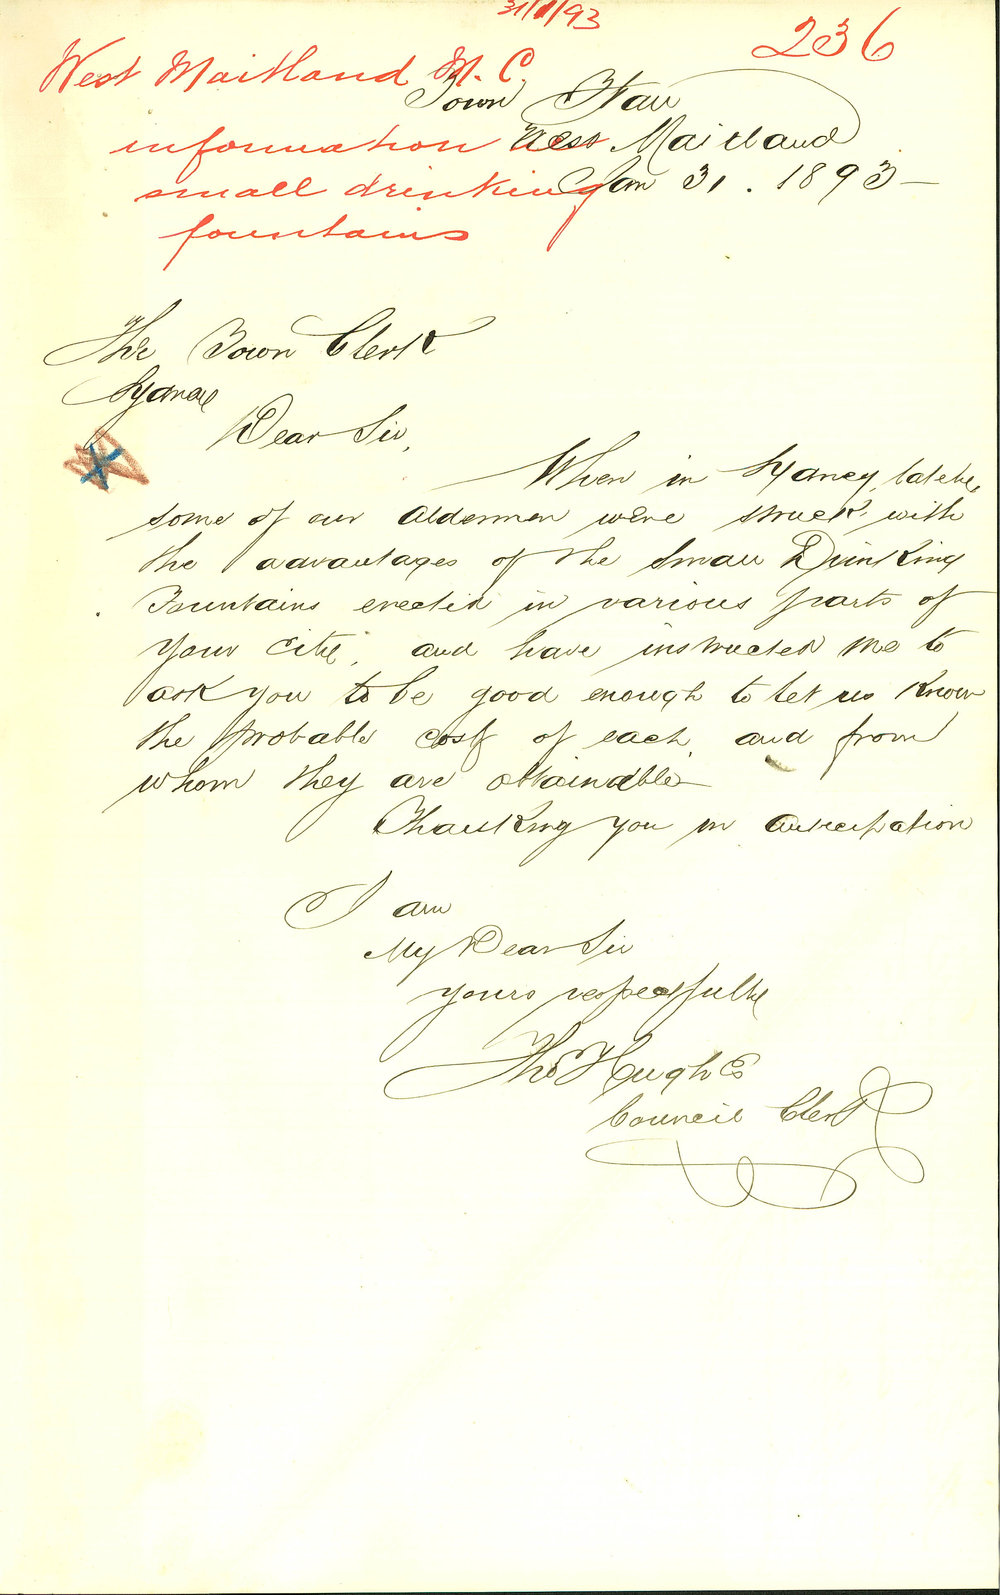 31/1/93
236
West Maitland M. C.
information
small drinking
fountains
Town Hall
West Maitland
Jan 31. 1893 —
The Town Clerk
Sydney
Dear Sir,
When in Sydney lately,
some of our Aldermen were struck with
the advantages of the Small Drinking
Fountains erected in various parts of
your City, and have instructed me to
ask you to be good enough to let us know
the probable cost of each, and from
whom they are obtainable
Thanking you in anticipation
I am
My Dear Sir
yours respectfully
Tho Hughes
Council Clerk